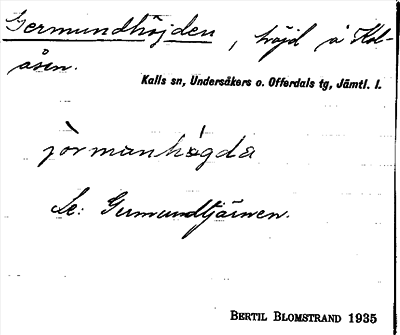 Germundhöjden, höjd å Kol-
åsen.
Kalls sn, Undersåkers o. Offerdals tg, Jämtl. l.
jörmanhögda
Se: Germundtjärnen.
BERTIL BLOMSTRAND 1935